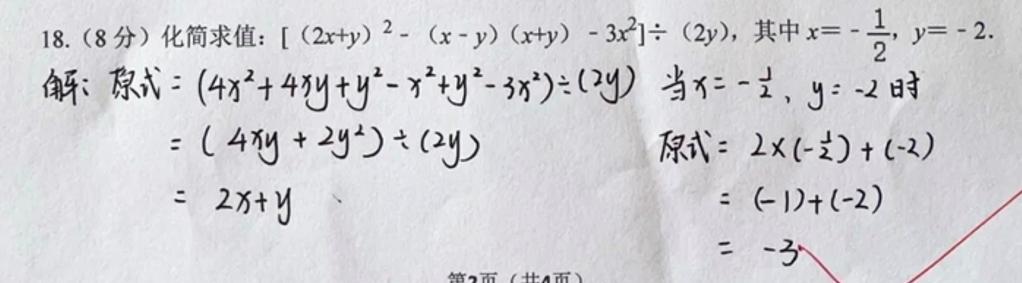 18.（8分）化简求值：[（2x+y）²-（x-y）（x+y）-3x²]÷（2y），其中 x=-1/2，y=-2.
解：原式=(4x²+4xy+y²-x²+y²-3x²)÷(2y)
=(4xy+2y²)÷(2y)
=2x+y
当x=-1/2，y=-2时
原式=2×(-1/2)+(-2)
=(-1)+(-2)
=-3
第2页（共4页）